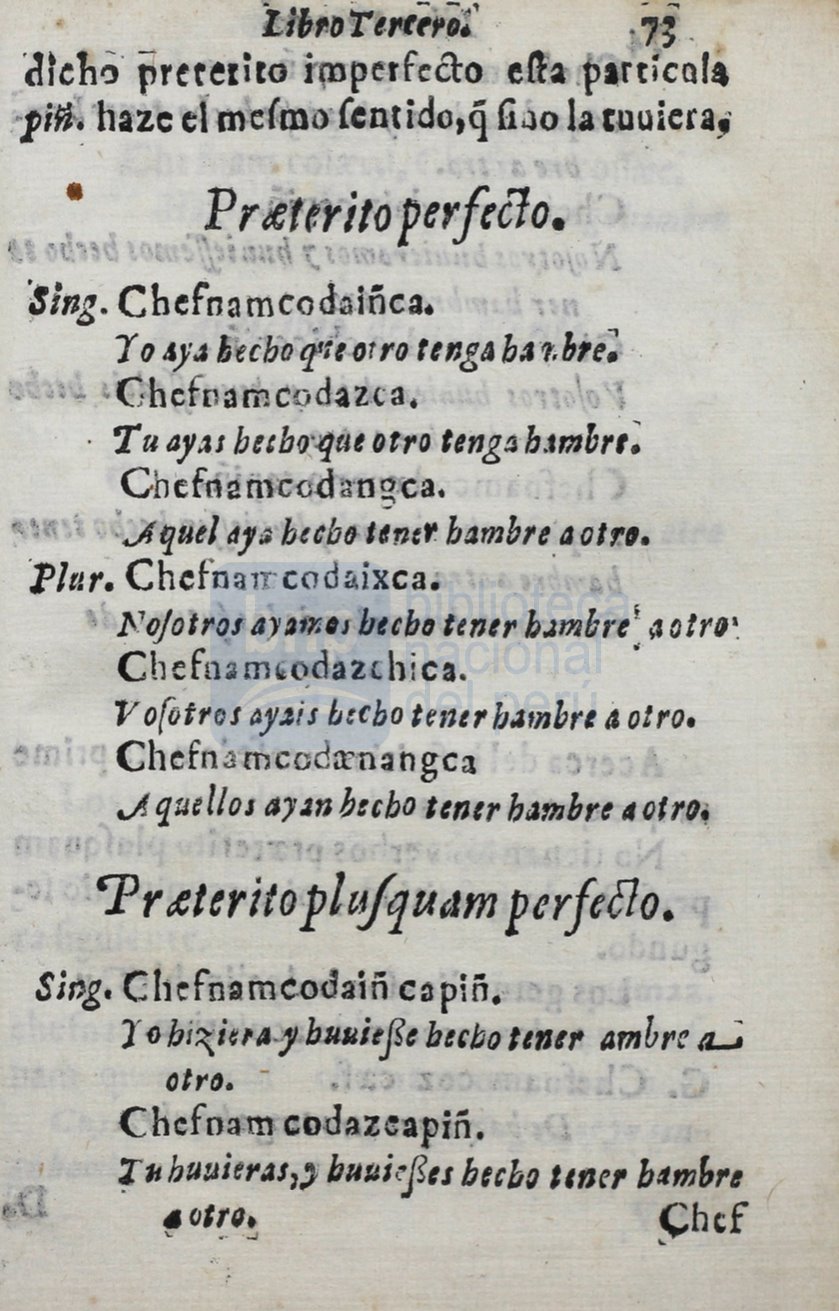 Libro Tercero. 73
dicho preterito imperfecto eſta particula
piñ. haze el meſmo ſentido, q̃ ſino la tuuiera.
Præterito perfecto.
Sing. Chefnamcodaiñca.
Yo aya hecho que otro tenga hambre.
Chefnamcodazca.
Tu ayas hecho que otro tenga hambre.
Chefnamcodangca.
Aquel aya hecho tener hambre a otro.
Plur. Chefnamcodaixca.
Noſotros ayamos hecho tener hambre a otro
Chefnamcodazchica.
Voſotros ayais hecho tener hambre a otro.
Chefnamcodænangca
Aquellos ayan hecho tener hambre a otro.
Præterito pluſquam perfecto.
Sing. Chefnamcodaiñ capiñ.
Yo hiziera y huuieße hecho tener ambre a
otro.
Chefnam codazcapiñ.
Tu huuieras, y huuießes hecho tener hambre
a otro.
Chef
biblioteca
nacional
del perú